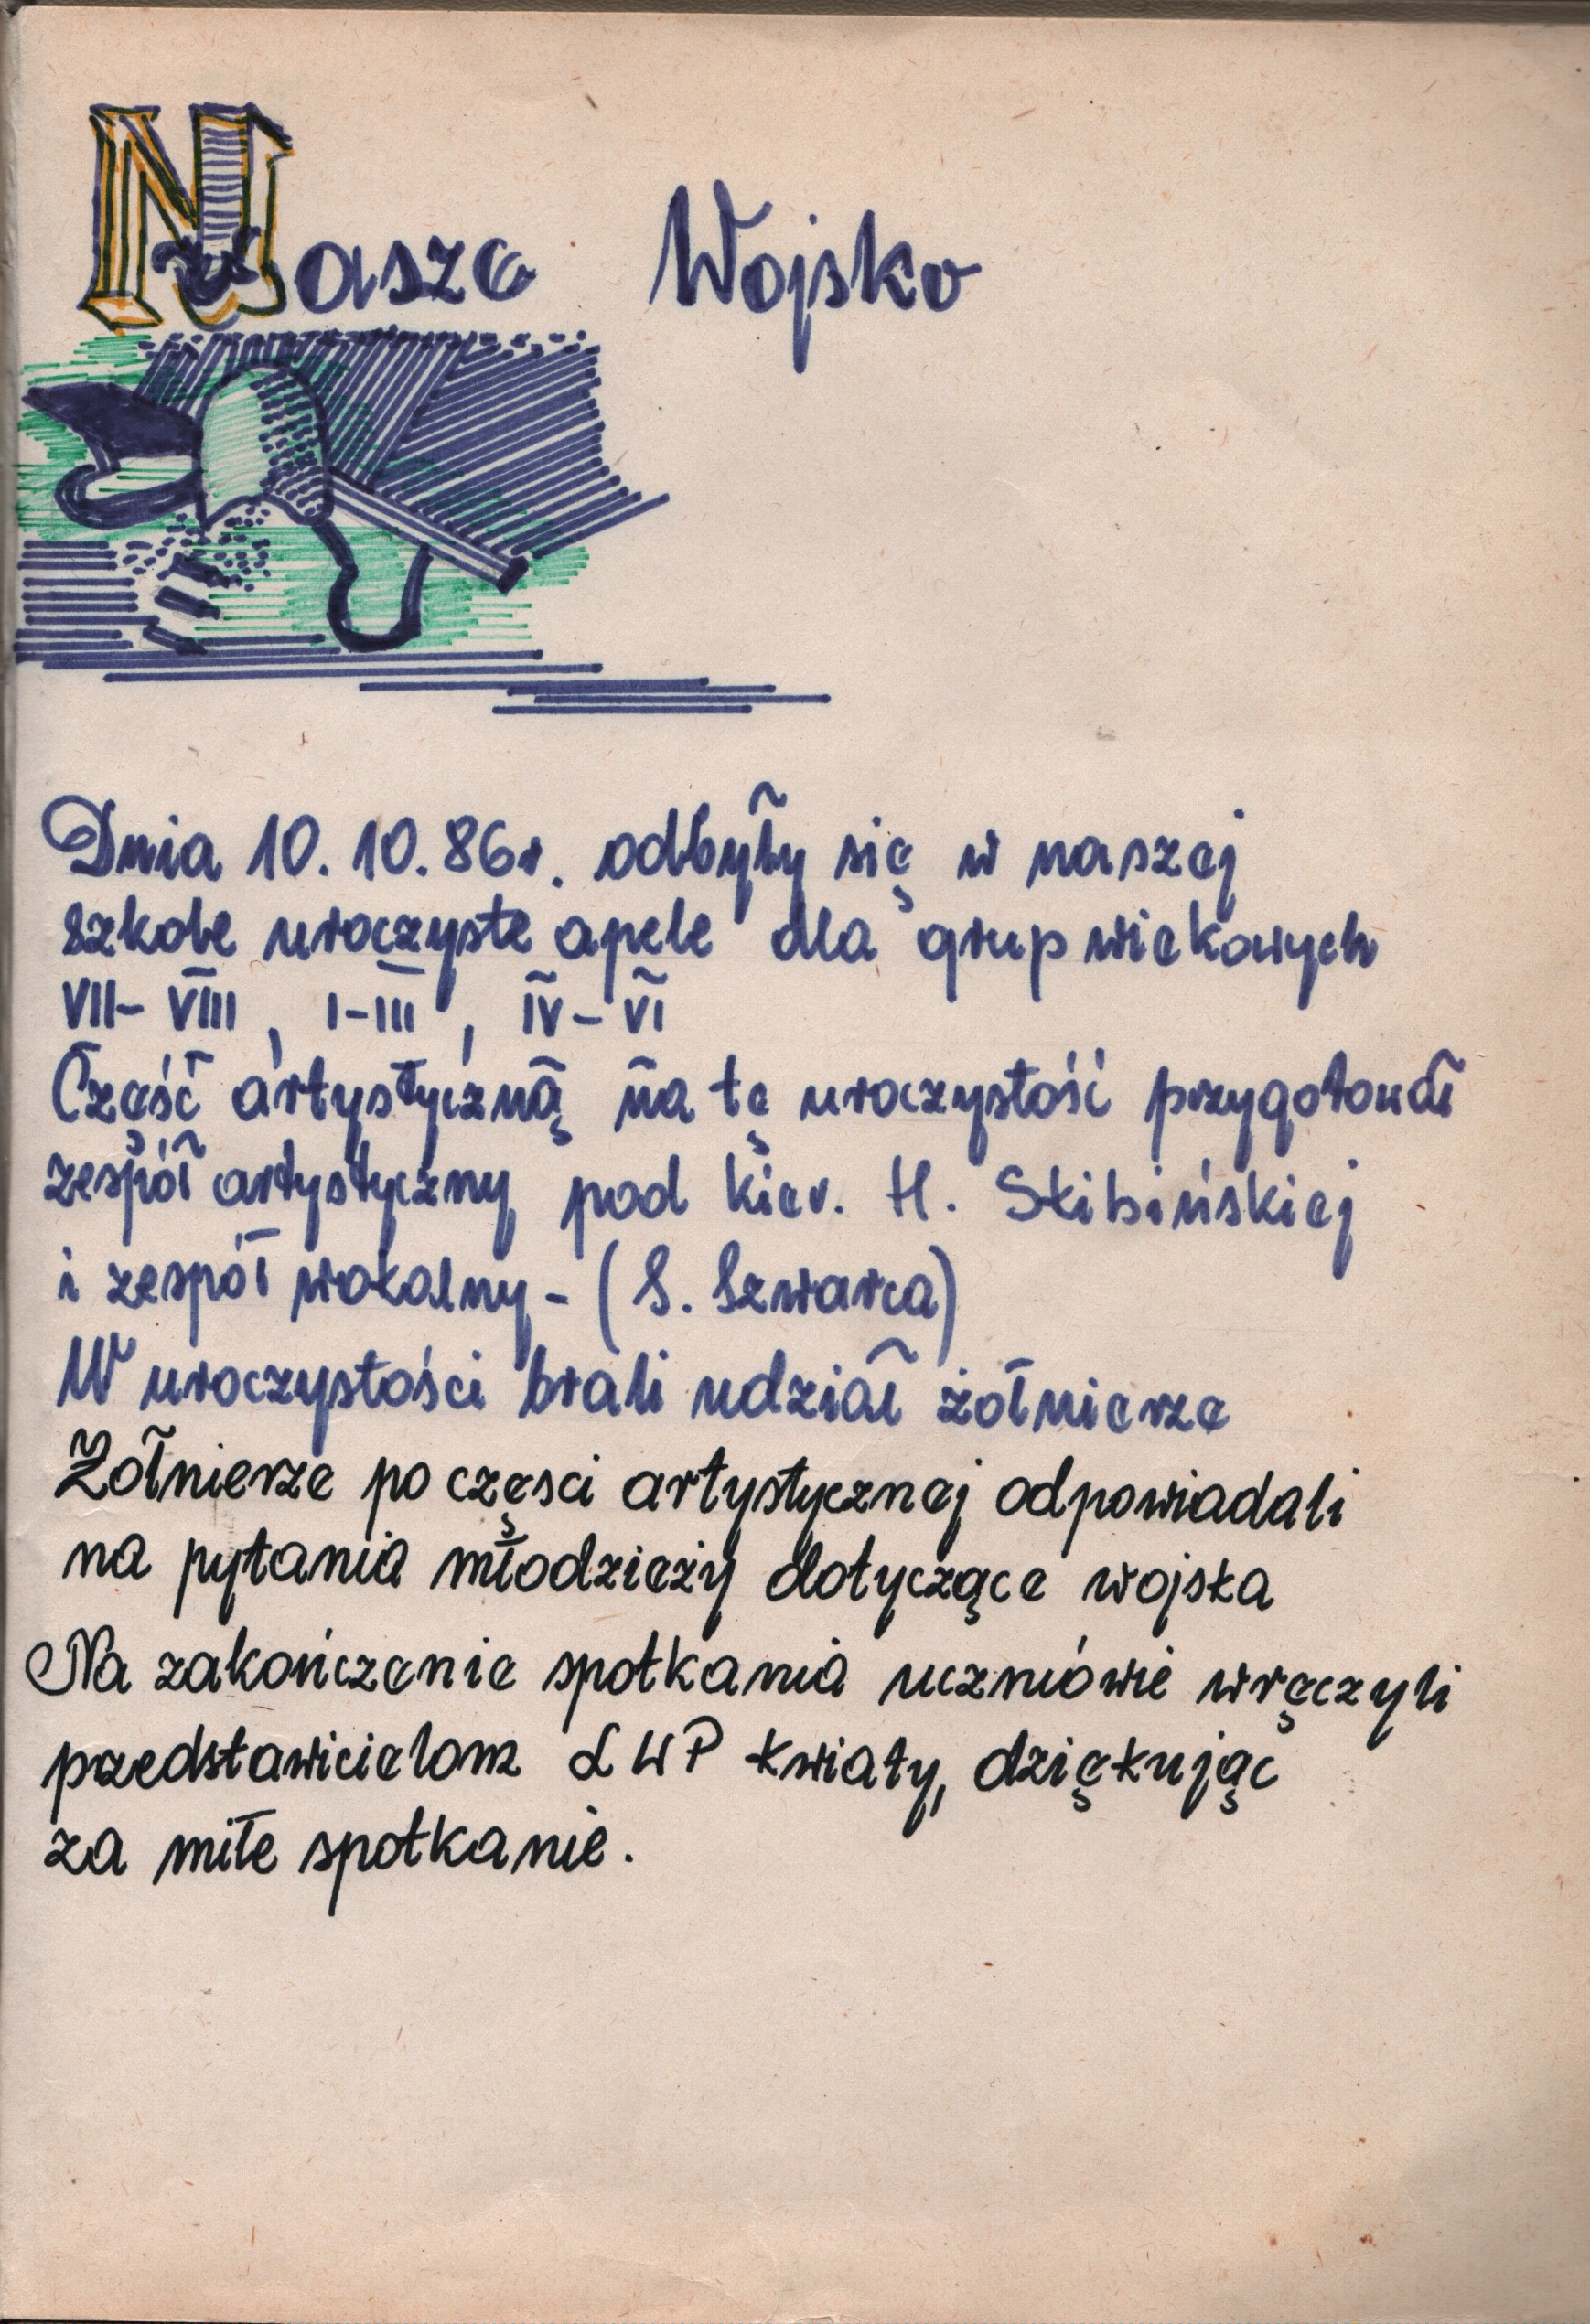 Nasze Wojsko
Dnia 10.10.86r. odbyły się w naszej
szkole uroczyste apele dla grup wiekowych
VII-VIII, I-III, IV-VI
Część artystyczną na tę uroczystość przygotował
zespół artystyczny pod kier. H. Skibińskiej
i zespół wokalny - (S. Szwarca)
W uroczystości brali udział żołnierze
Żołnierze po częsci artystycznej odpowiadali
na pytania młodzieży dotyczące wojska
Na zakończenie spotkania uczniówie wręczyli
przedstawicielom LWP kwiaty, dziękując
za miłe spotkanie.